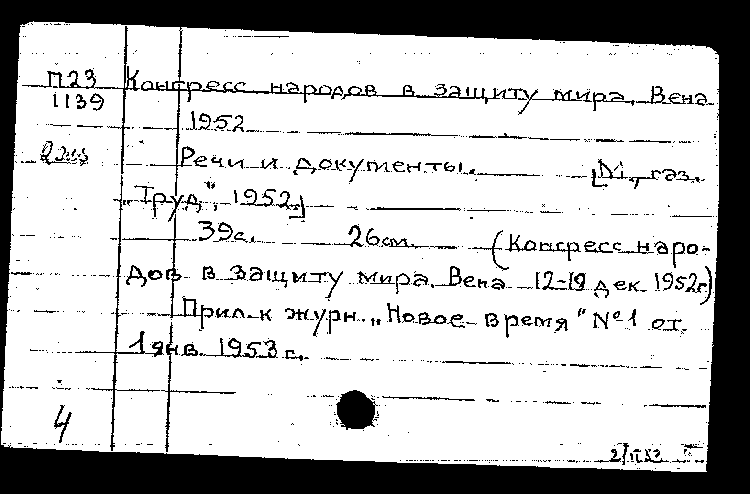 П23 Конгресс народов в защиту мира, Вена
1139
1952
2 экз
Речи и документы. [М., газ.
„Труд", 1952.]
39с. 26см. (Конгресс наро-
дов в защиту мира. Вена 12-19 дек. 1952г)
Прил. к журн. „Новое время" №1 от
1 янв. 1953 г.
4